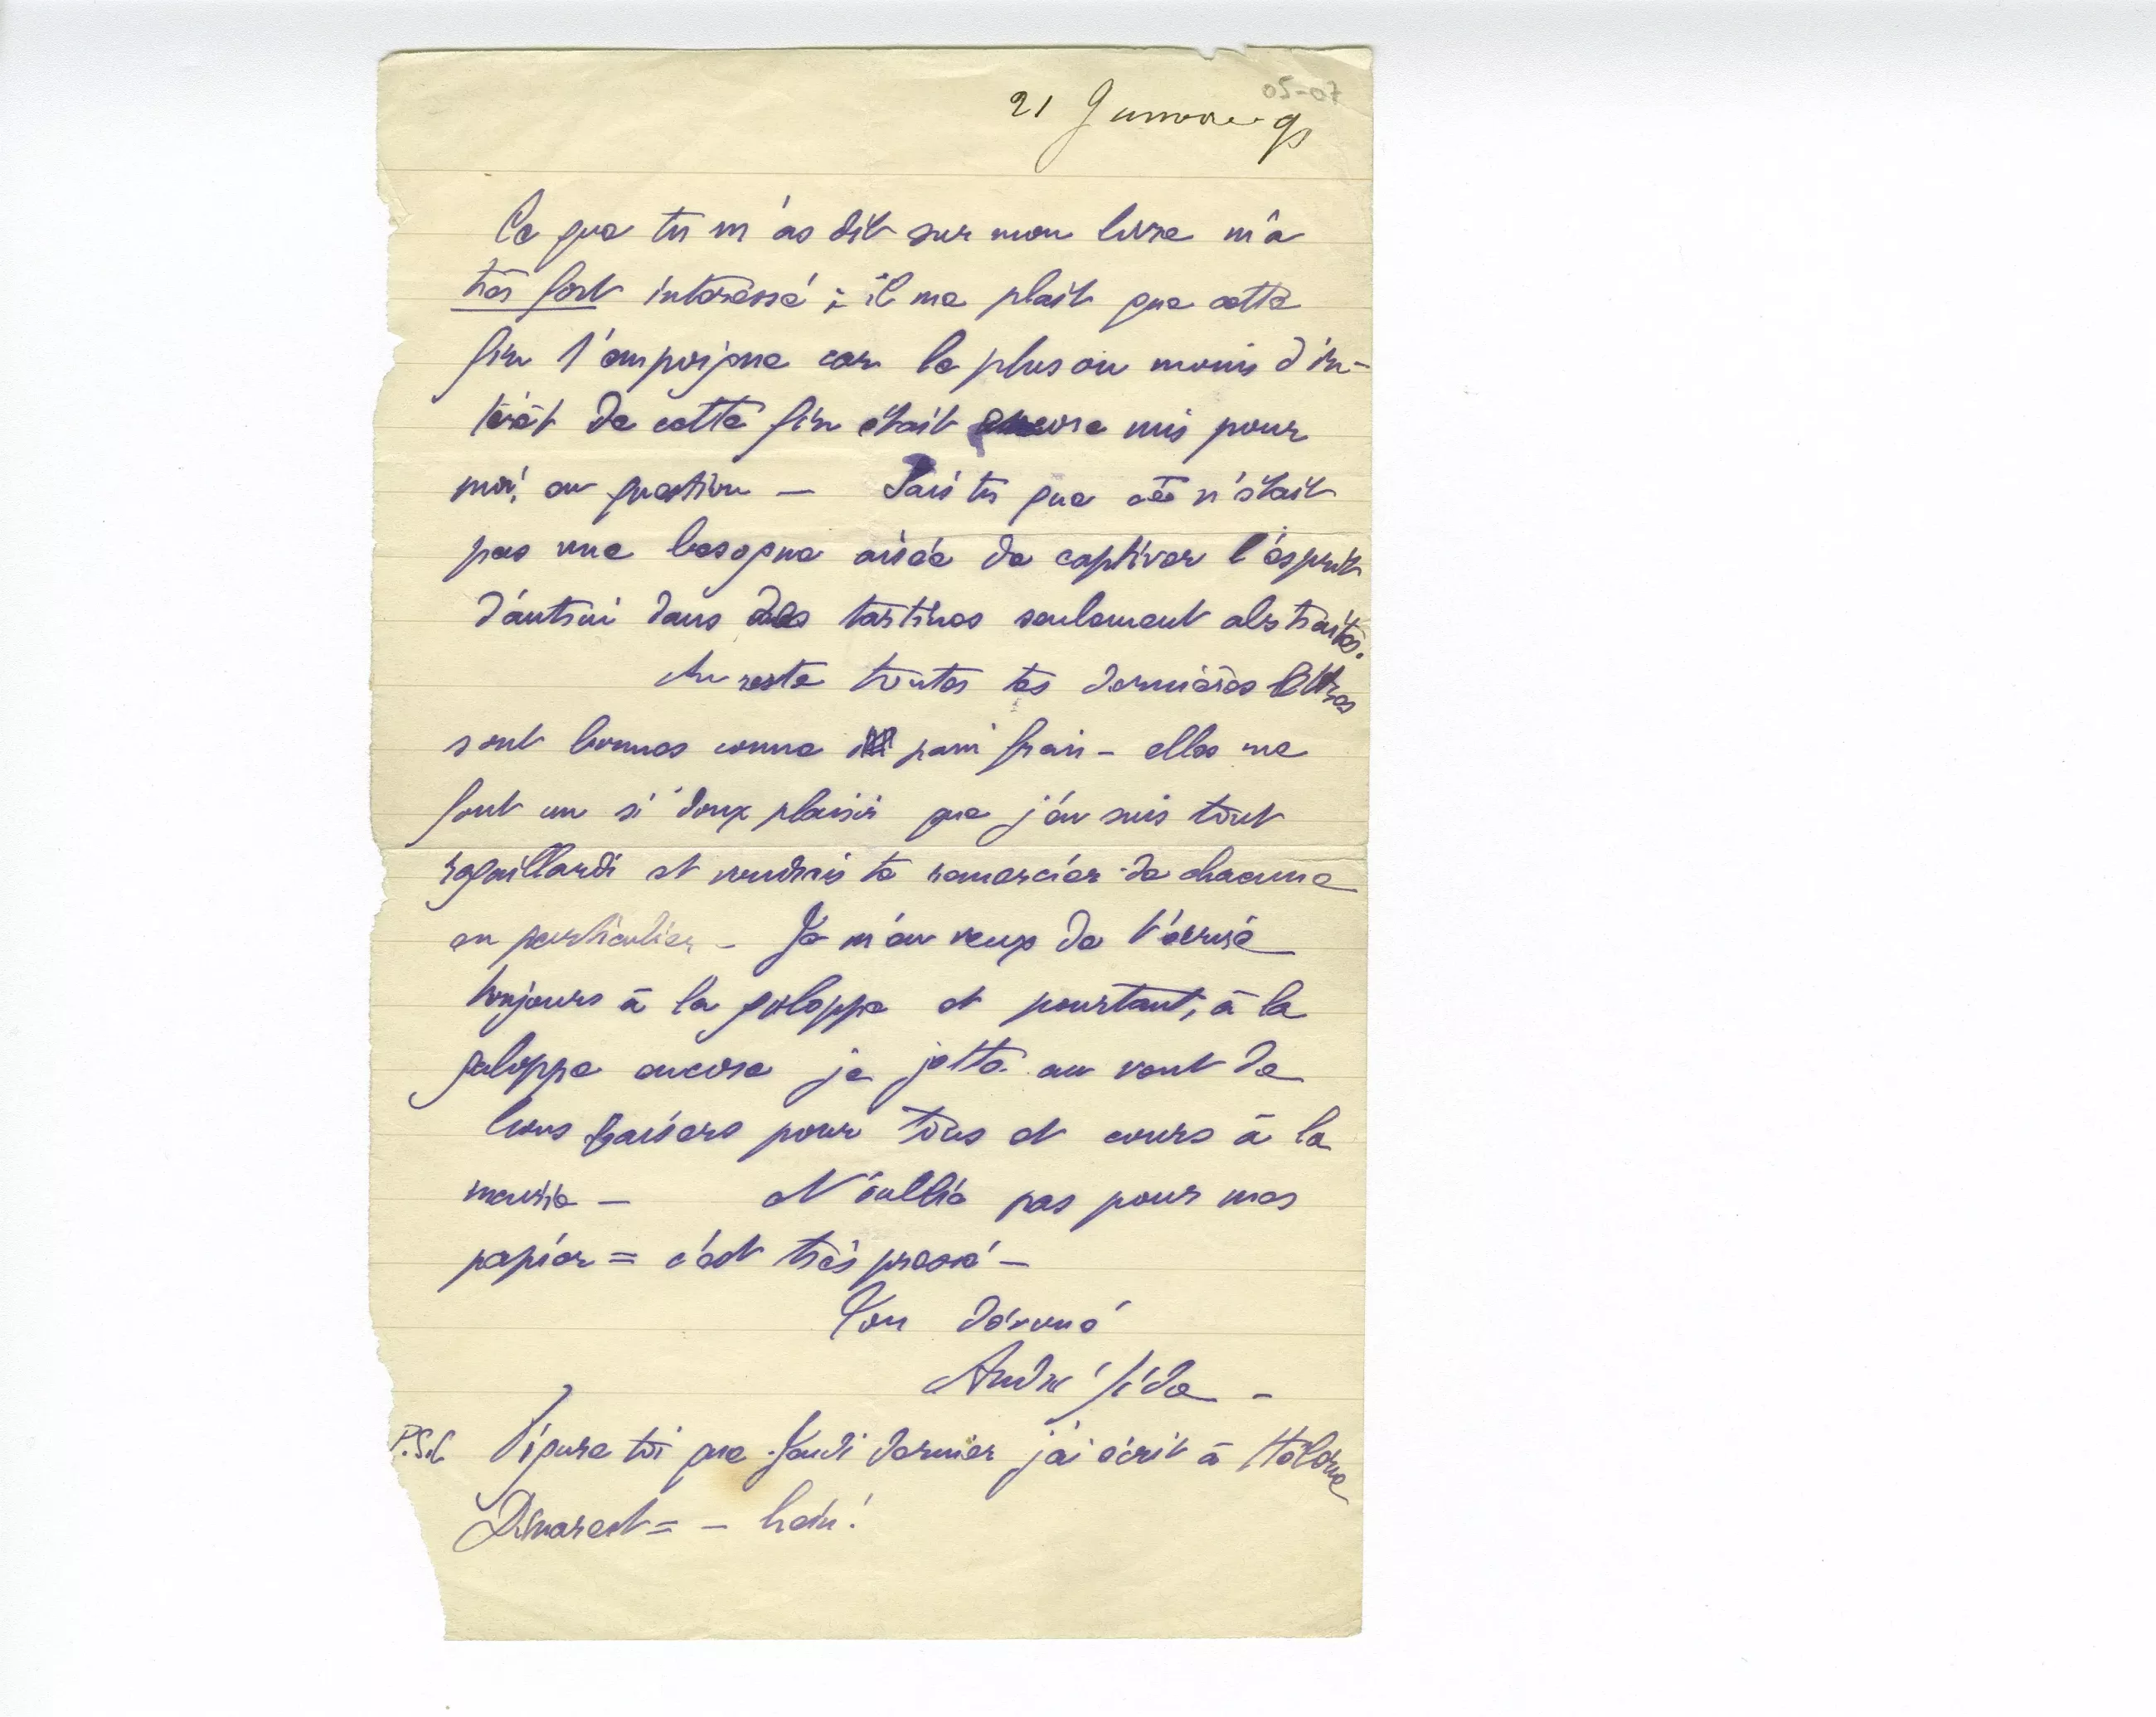 05-07
21 Janvier 91
Ce que tu m'as dit sur mon livre m'a
très fort intéressé ; il me plait que cette
fin t'empoigne car le plus ou moins d'in-
térêt de cette fin était encore mis pour
moi, en question — Sais tu que ce n'était
pas une besogne aisée de captiver l'esprit
d'autrui dans des tartines seulement abstraites.
Au reste toutes tes dernières lettres
sont bonnes comme pain frais – elles me
font un si doux plaisir que j'en suis tout
ragaillardi et voudrais te remercier de chacune
en particulier – Je m'en veux de t'écrire
toujours à la galoppe et pourtant, à la
galoppe encore je jette au vent de
bons baisers pour tous et cours à la
mairie — N'oublie pas pour mes
papier = c'est très pressé —
Ton dévoué
André Gide –
P.S. Figure toi que Jeudi dernier j'ai écrit à Hélène
Dimarest = – hein !